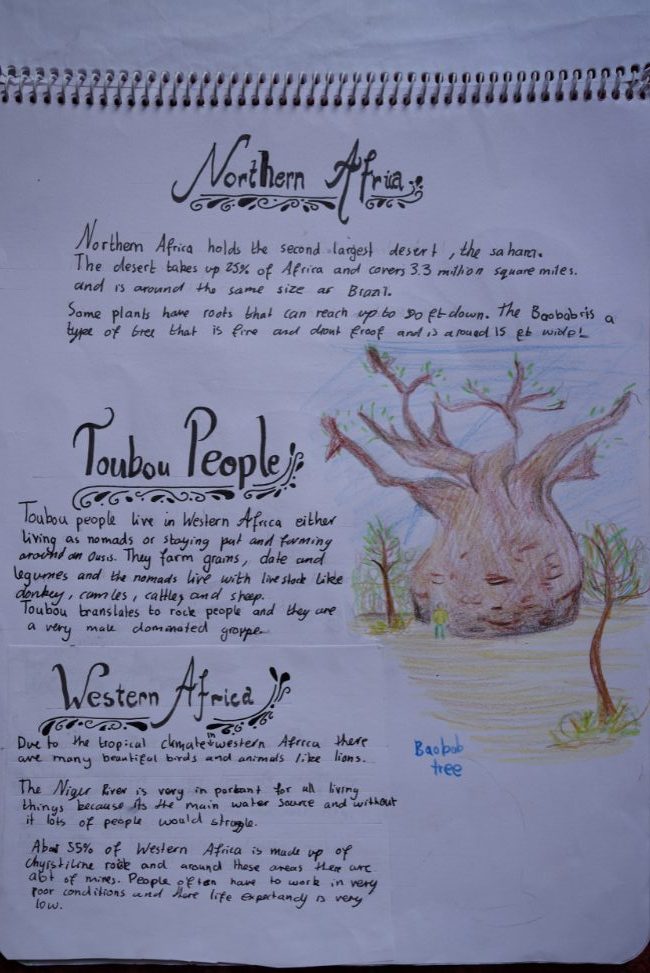 Northern Africa
Northern Africa holds the second largest desert, the sahara.
The desert takes up 25% of Africa and covers 3.3 million square miles.
and is around the same size as Brazil.
Some plants have roots that can reach up to 50 ft down. The Baobab is a
type of tree that is fire and drout proof and is around 15 ft wide!
Toubou People
Toubou people live in Western Africa either
living as nomads or staying put and farming
around an Oasis. They farm grains, date and
legumes and the nomads live with livestock like
donkey, camles, cattles and sheep.
Toubou translates to rock people and they are
a very male dominated groupe.
Western Africa
Due to the tropical climate in western Africa there
are many beautiful birds and animals like lions.
The Niger River is very in portant for all living
things because its the main water source and without
it lots of people would struggle.
Abot 55% of Western Africa is made up of
rock and around these areas there are
alot of mines. People often have to work in very
poor conditions and there life expectancy is very
low.
Baobob
tree